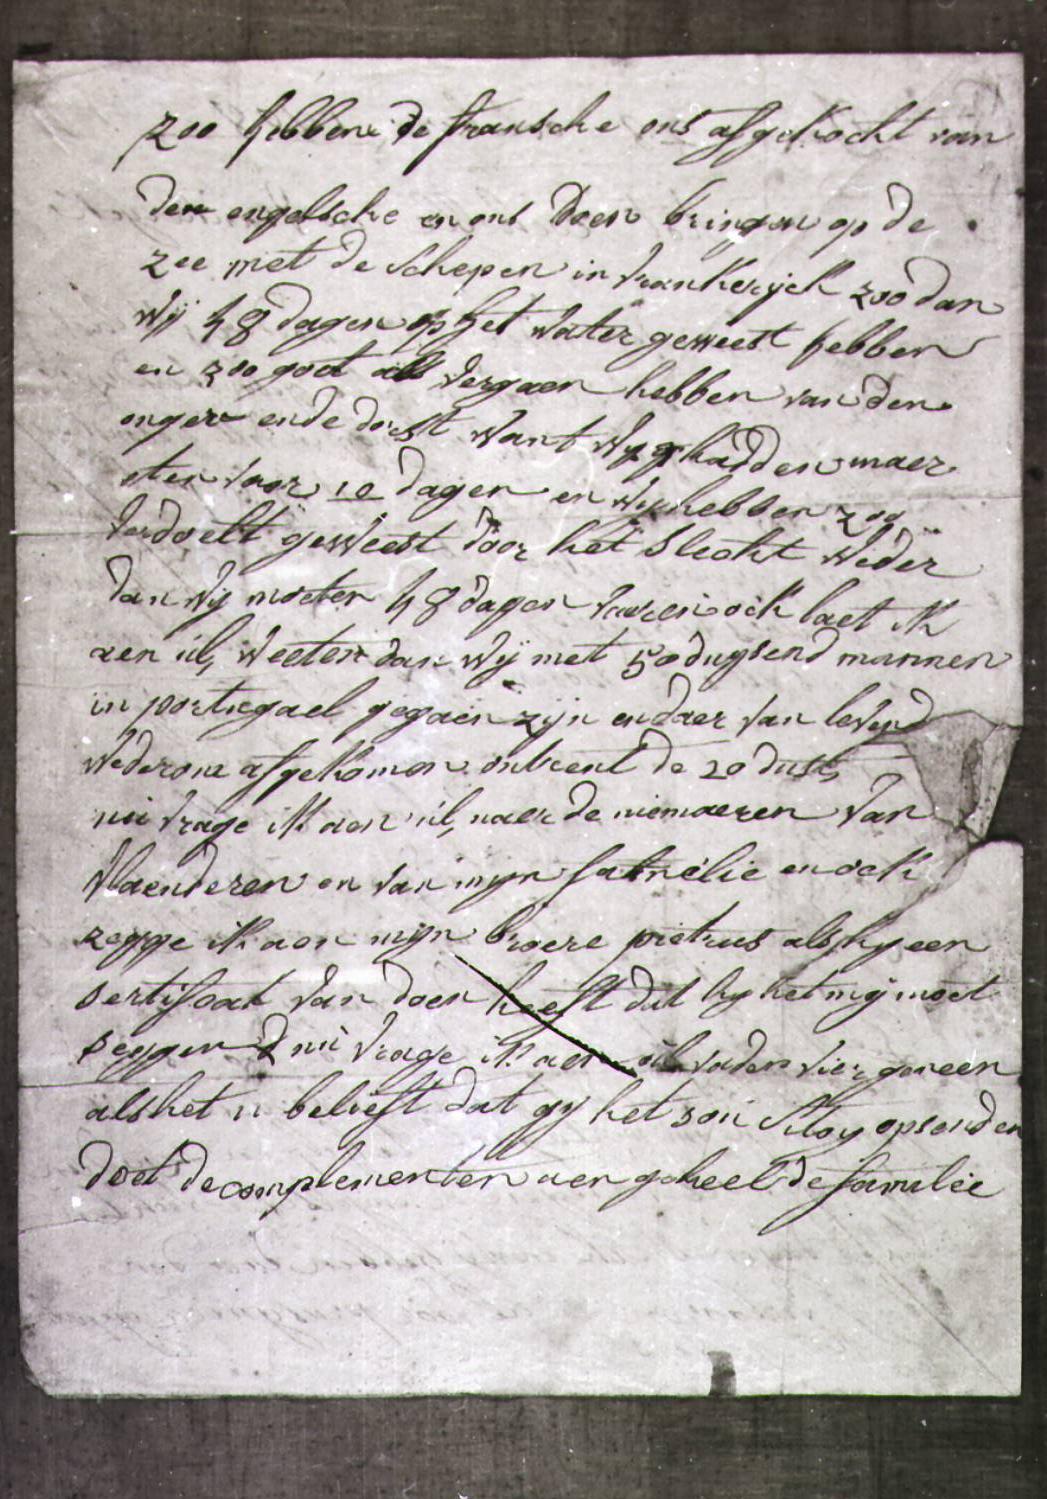 zoo hebben de fransche ons afgekocht van
den engelsche en ons doen bringen op de
zee met de schepen in vrankeryck zoo dan
wij 48 dagen op het water geweest hebben
en zoo goet als vergaen hebben van den
onger en de dorst want wy hadden maer
eten voor 10 dagen en wy hebben zoo
verdoelt geweest door het slecht weder
dan wy moeten 48 dagen vaeren ock laet ik
aen ul, weeten dan wij met 50 duysend mannen
in portiegael gegaen zijn en daer van levend
wederom afgekomen ontrent de 20 dust,
nu vrage ik aen ul, naer de niemaeren van
vlaenderen en van mijn famelie en ock
zegge ik aen mijn broere pietrus als hy een
sertifcaat van doen heeft dat hy het mij moet
seggen nu vrage ik aen ul vader vier geneen
als het u belieft dat gy het zou opsenden
doet de complementen aen geheel de familie